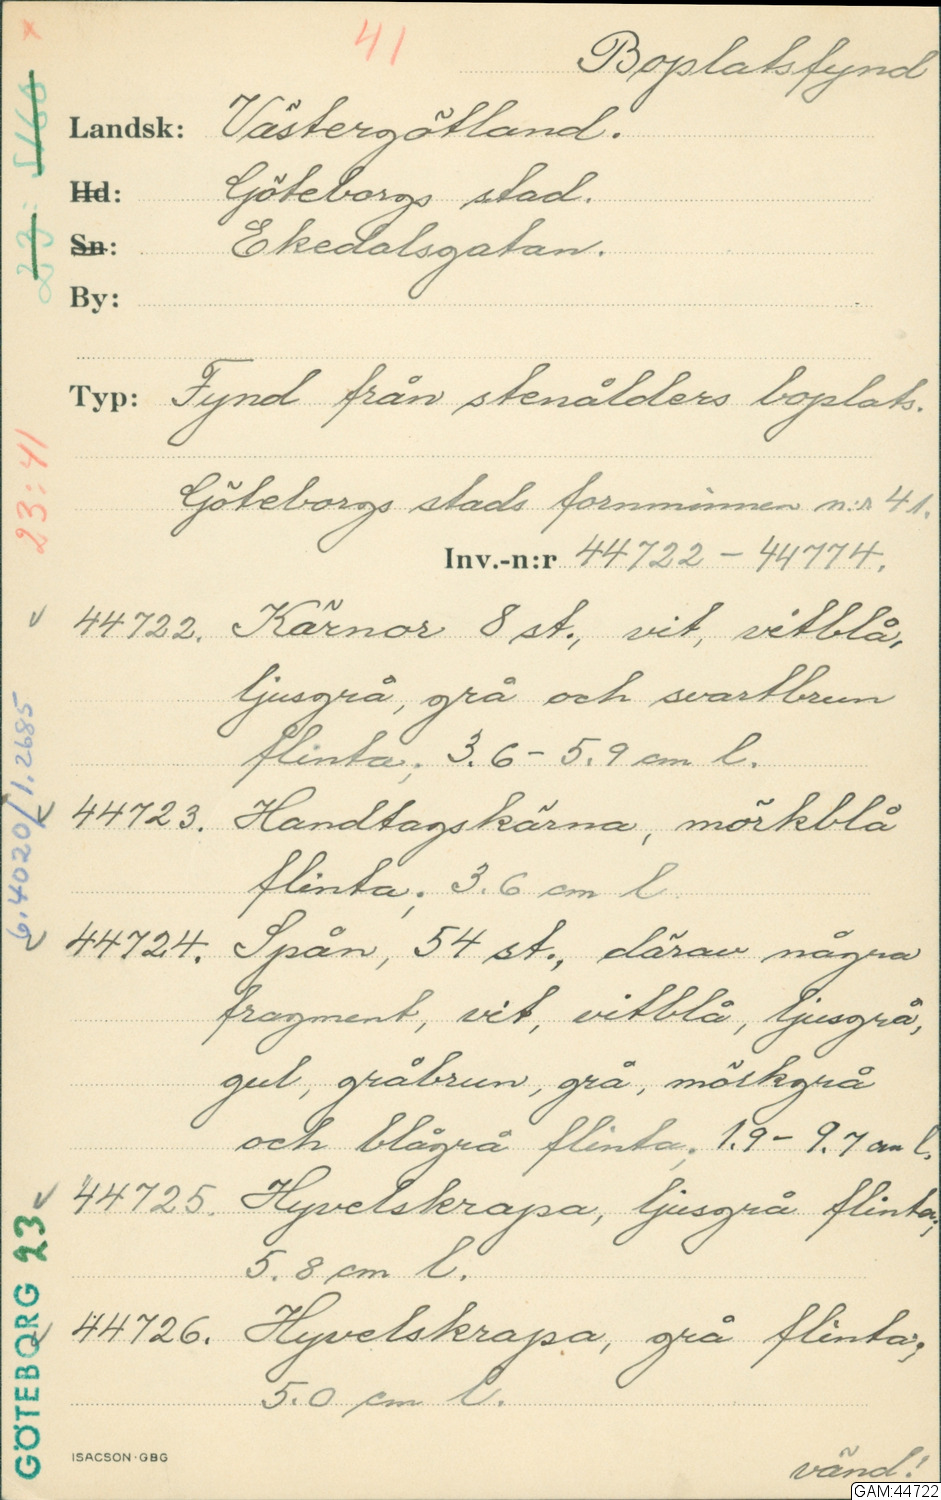 41
Boplatsfynd
Landsk: Västergötland.
Hd: Göteborgs stad.
Sn: Ekedalsgatan.
By:
Typ: Fynd från stenålders boplats.
Göteborgs stads fornminnen n:r 41.
Inv.-n:r 44722 - 44774.
44722. Kärnor 8 st., vit, vitblå,
ljusgrå, grå och svartbrun
flinta; 3.6 - 5.9 cm l.
44723. Handtagskärna, mörkblå
flinta; 3.6 cm l
44724. Spån, 54 st., därav några
fragment, vit, vitblå, ljusgrå,
gul, gråbrun, grå, mörkgrå
och blågrå flinta; 1.9 - 9.7 cm l.
44725. Hyvelskrapa, ljusgrå flinta;
5.8 cm l.
44726. Hyvelskrapa, grå flinta;
5.0 cm l.
ISACSON·GBG
vänd!
GAM:44722
23:41
6.4020/1.2685
GÖTEBORG 23